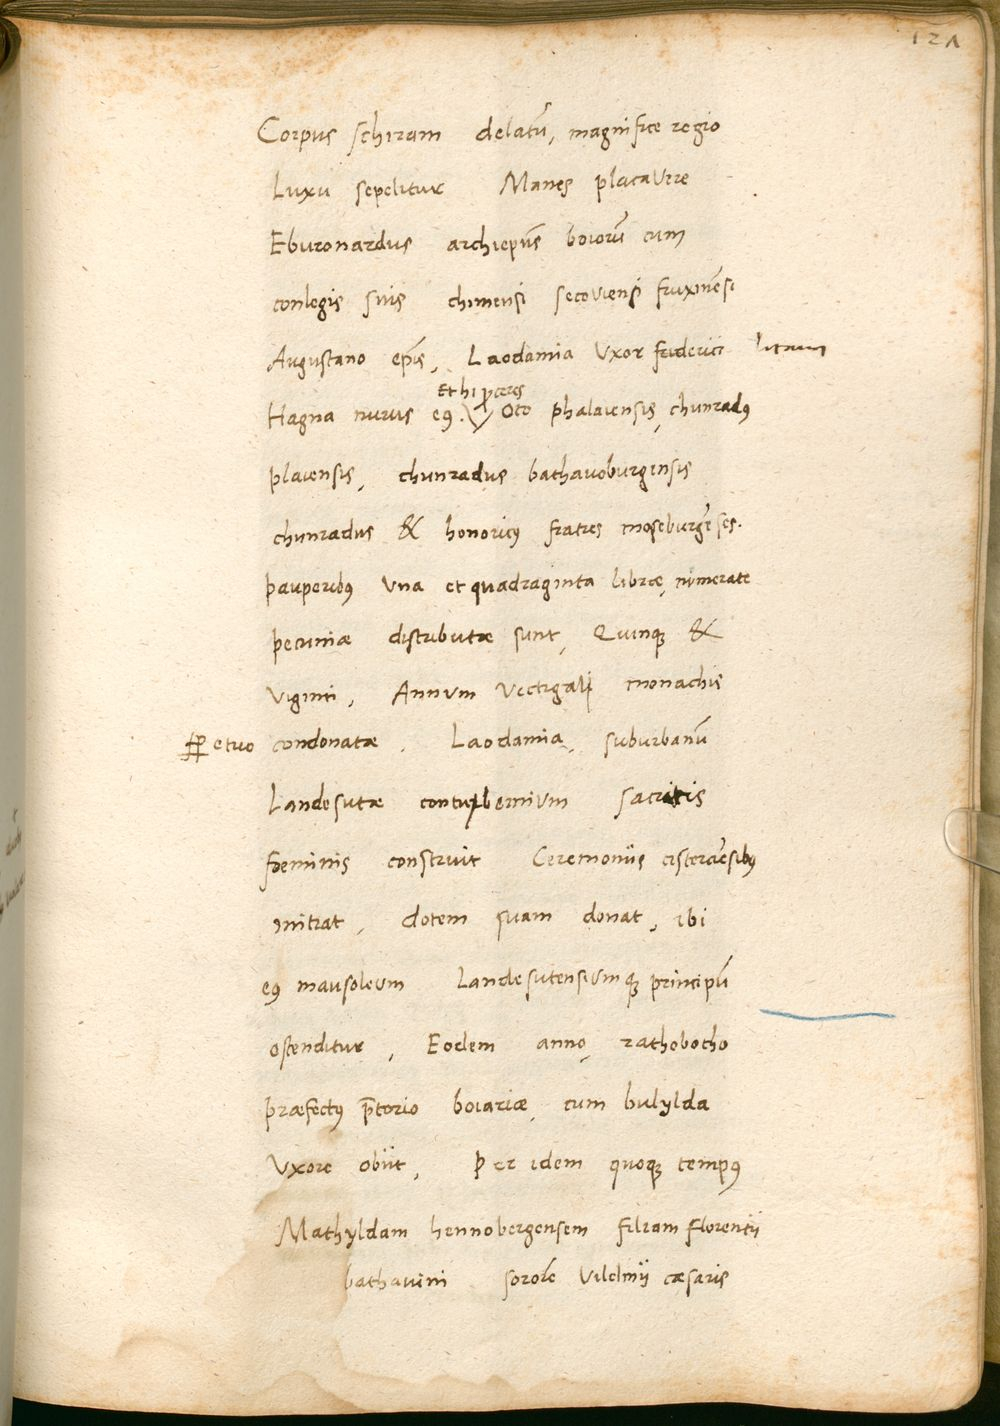 121
Corpus schiram delatū, magnifice regio
Luxu sepelitur Manes placavere
Eburonardus archiepūs boiorū cum
conlegis suis chimensi secoviensi fruxinēsi
Augustano epīs, Laodamia Uxor friderici
Et hi pceres
Hagna nurus eꝰ. Oto phalaiensis, chunradꝰ
plaiensis, chunradus bathavoburgensis
chunradus & honoricꝰ fratres moseburgēses.
pauperibꝰ Una et quadraginta libræ, nūmerate
pecuniæ distributæ sunt, Quinqꝫ &
viginti, Annum vectigali monachis
ꝑpetuo condonatæ. Laodamia, suburbanū
Landesutæ contubernium sacratis
fœminis construit Ceremoniis cisterciēsibꝰ
initrat, dotem suam donat, ibi
eꝰ mausoleum Landesutensiumqꝫ principū
ostenditur, Eodem anno, rathobotho
præfectꝰ p̄torio boiariæ, cum bulylda
Uxore obiit, Per idem quoqꝫ tempꝰ
Mathyldam hennobergensem filiam florentii
bathavini sororē Vilelmii cæsaris